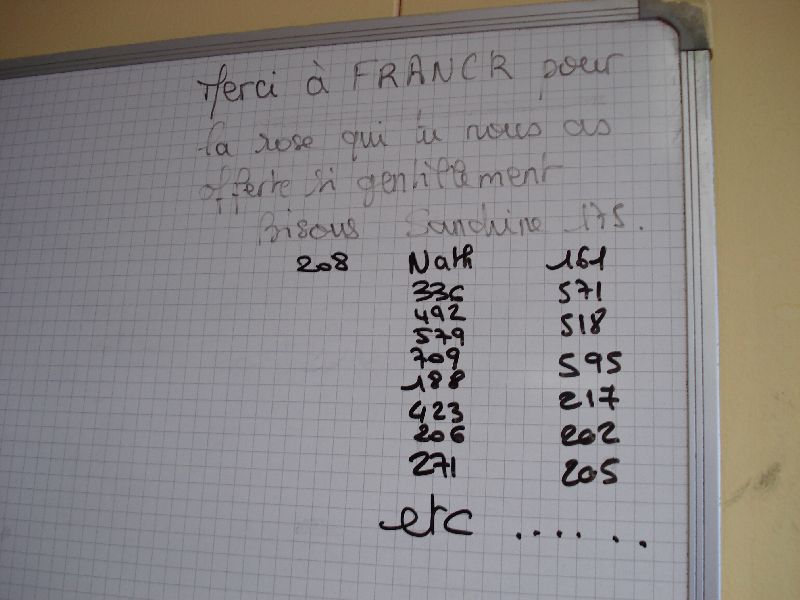 Merci à FRANCK pour
la rose qui tu nous as
offerte si gentillement
Bisous Sandrine 175.
208 Nath 161
336 571
492 518
579
709 595
188
423 217
206 202
271 205
etc ......